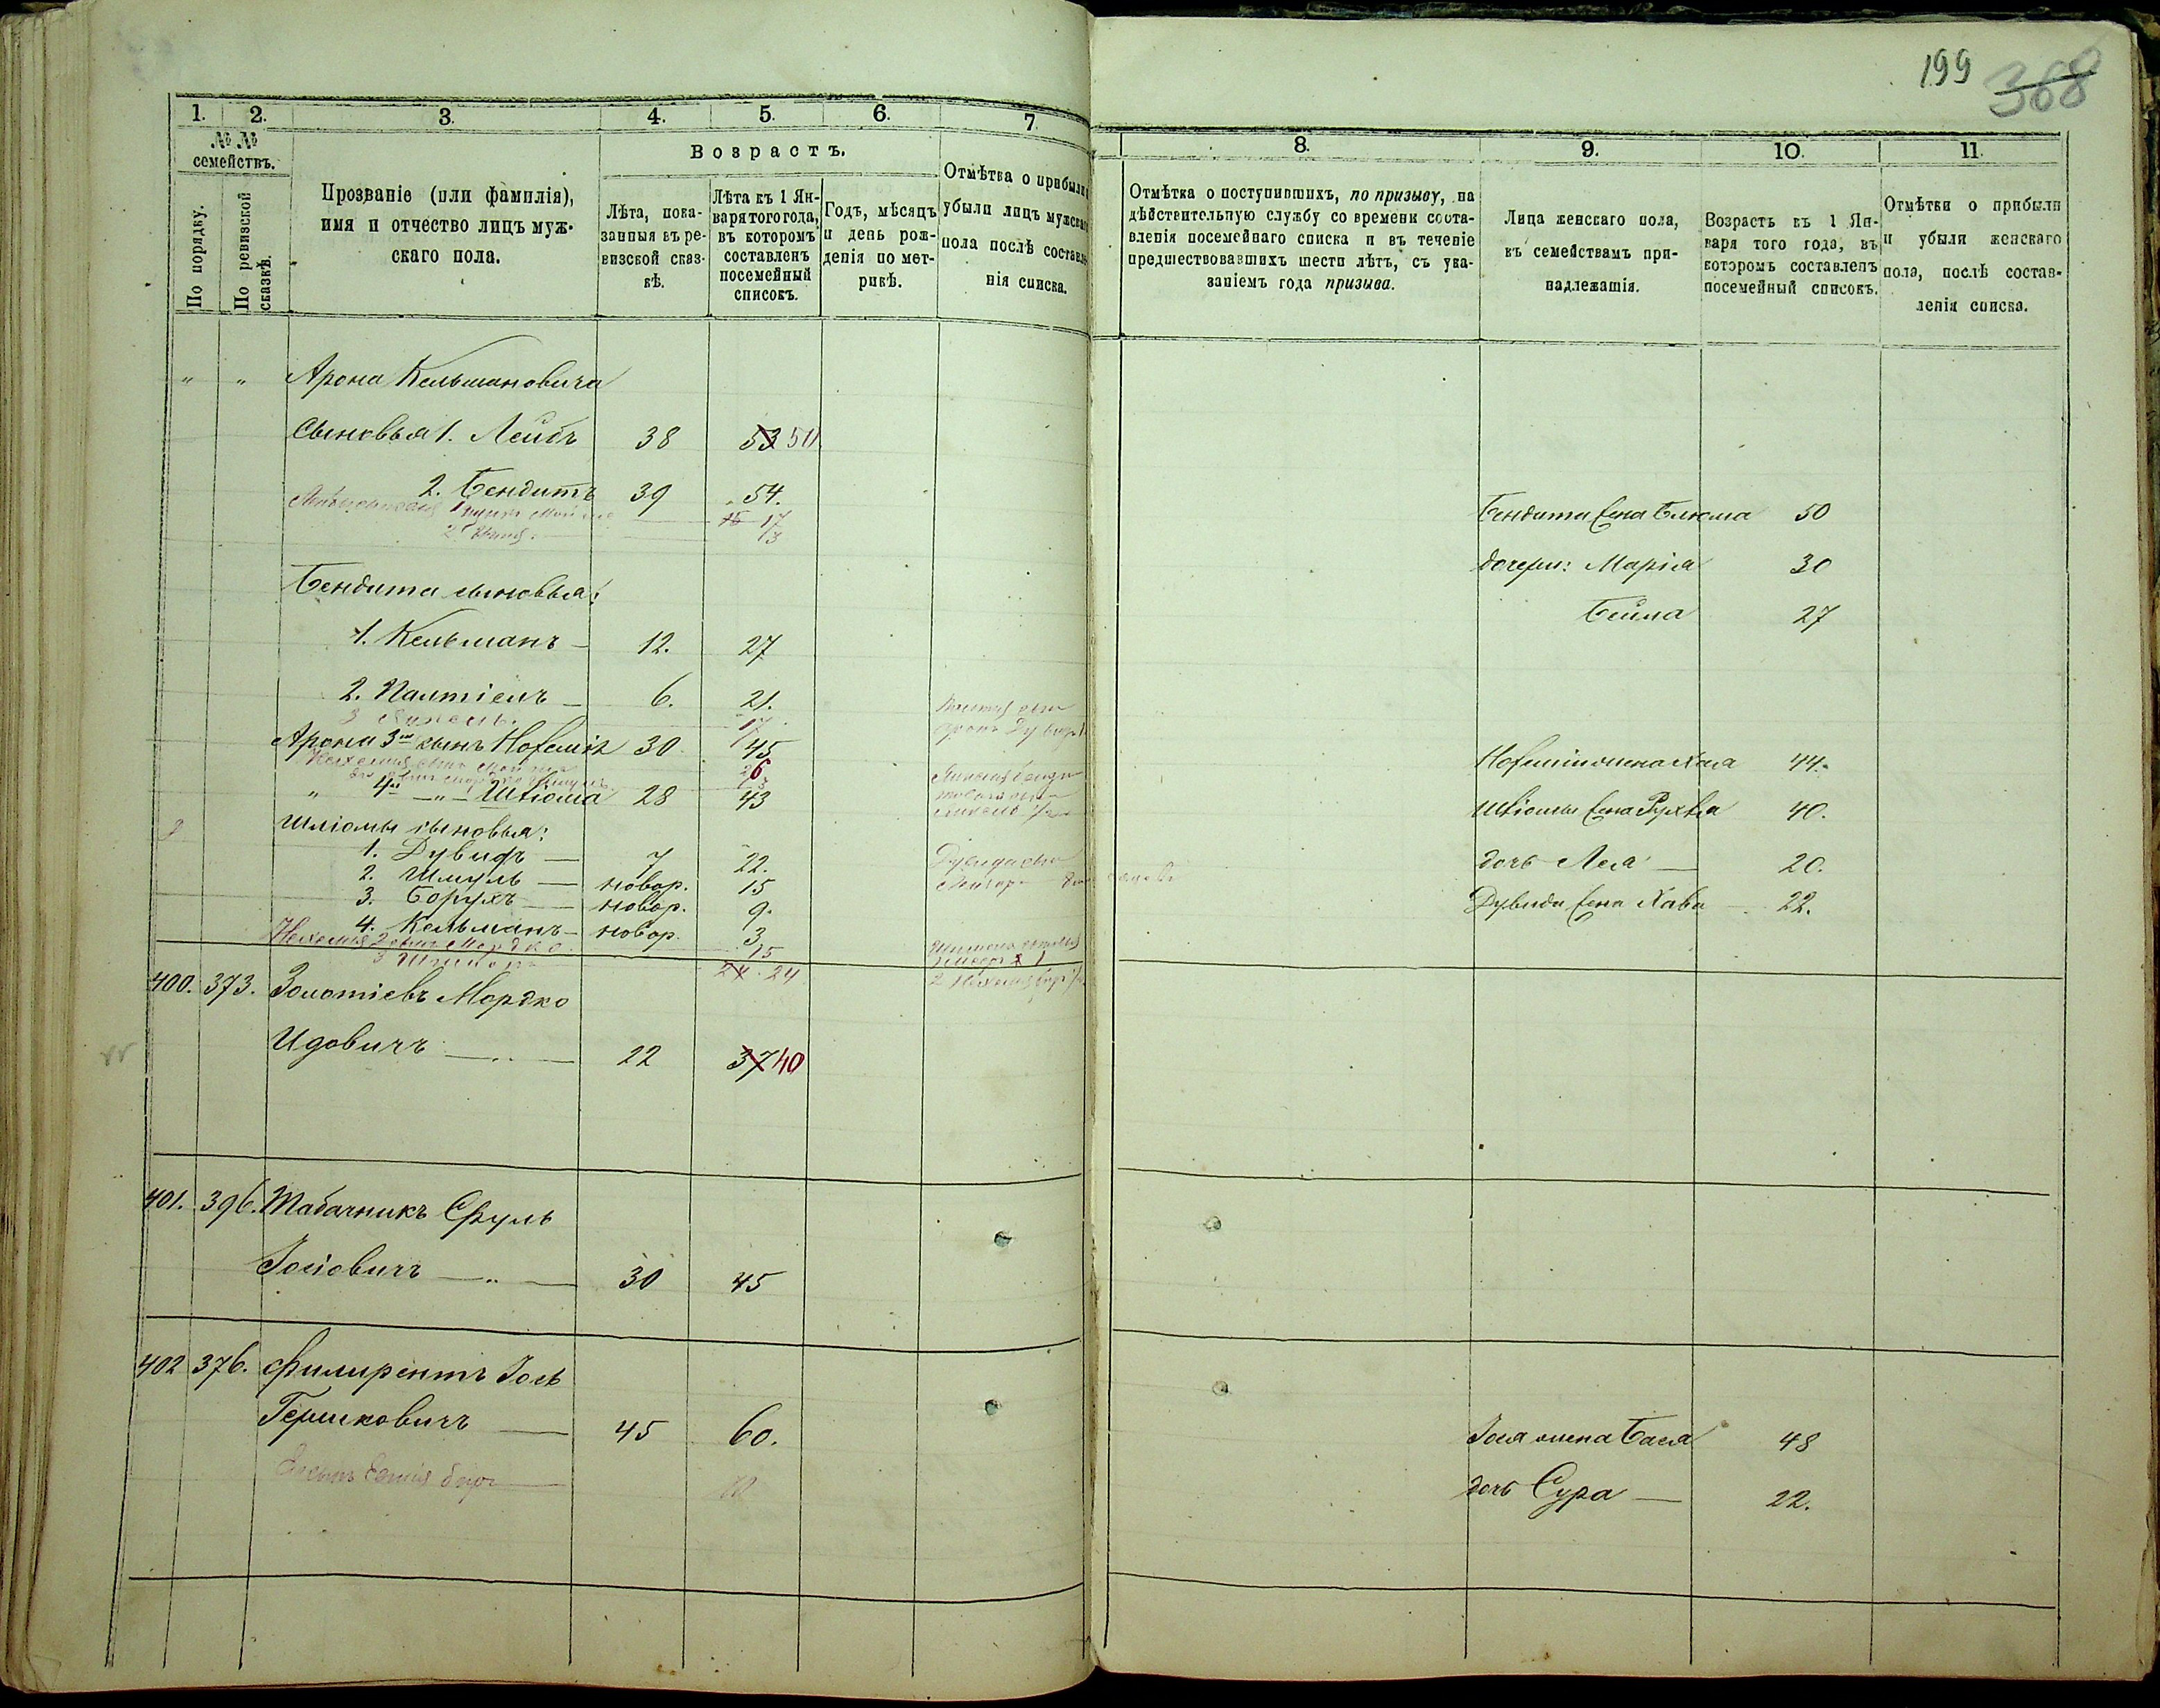 199 368
1. 2. 3. 4. 5. 6. 7.
№ № семействъ.
По порядку.
По ревизской сказкѣ.
Прозваніе (или фамилія),
имя и отчество лицъ муж-
скаго пола.
Возрастъ.
Лѣта, пока-
занныя въ ре-
визской сказ-
кѣ.
Лѣта къ 1 Ян-
варя того года,
въ которомъ
составленъ
посемейный
списокъ.
Годъ, мѣсяцъ
и день рож-
денія по мет-
рикѣ.
Отмѣтка о прибыли
убыли лицъ мужскаго
пола послѣ составле-
нія списка.
" " Арона Кельмановича
Сыновья 1. Лейбъ 38 53 50
2. Бендитъ 39 54.
15 17
13
Бендита сыновья:
1. Кельманъ — 12. 27
2. Палтіелъ — 6. 21.
17.
Арона 3й сынъ 30 45
" 4й —"— Шліома 28 43
Шліомы сыновья:
1. Дувидъ — 7 22.
2. Шмуль — новор. 15
3. Борухъ — новор. 9.
4. Кельманъ — новор. 3
15
24
400. 373. Золотіевъ Мордко
Идовичъ — " — 22 37 40
401. 396. Табачникъ Сруль
Іосіовичъ — " — 30 45
402 376. Филирентъ Іось
Гершковичъ — 45 60.
8. 9. 10. 11.
Отмѣтка о поступившихъ, по призыву, на
дѣйствительную службу со времени соста-
вленія посемейнаго списка и въ теченіе
предшествовавшихъ шести лѣтъ, съ ука-
заніемъ года призыва.
Лица женскаго пола,
къ семействамъ при-
надлежащія.
Возрастъ къ 1 Ян-
варя того года, въ
которомъ составленъ
посемейный списокъ.
Отмѣтки о прибыли
и убыли женскаго
пола, послѣ состав-
ленія списка.
Бендита жена Блюма 50
дочери: Марія 30
Бейла 27
жена Хая 44.
Шліомы жена Рухля 40.
дочь Лея — 20.
Дувида жена Хава — 22.
Іося жена Бася 48
дочь Сура — 22.